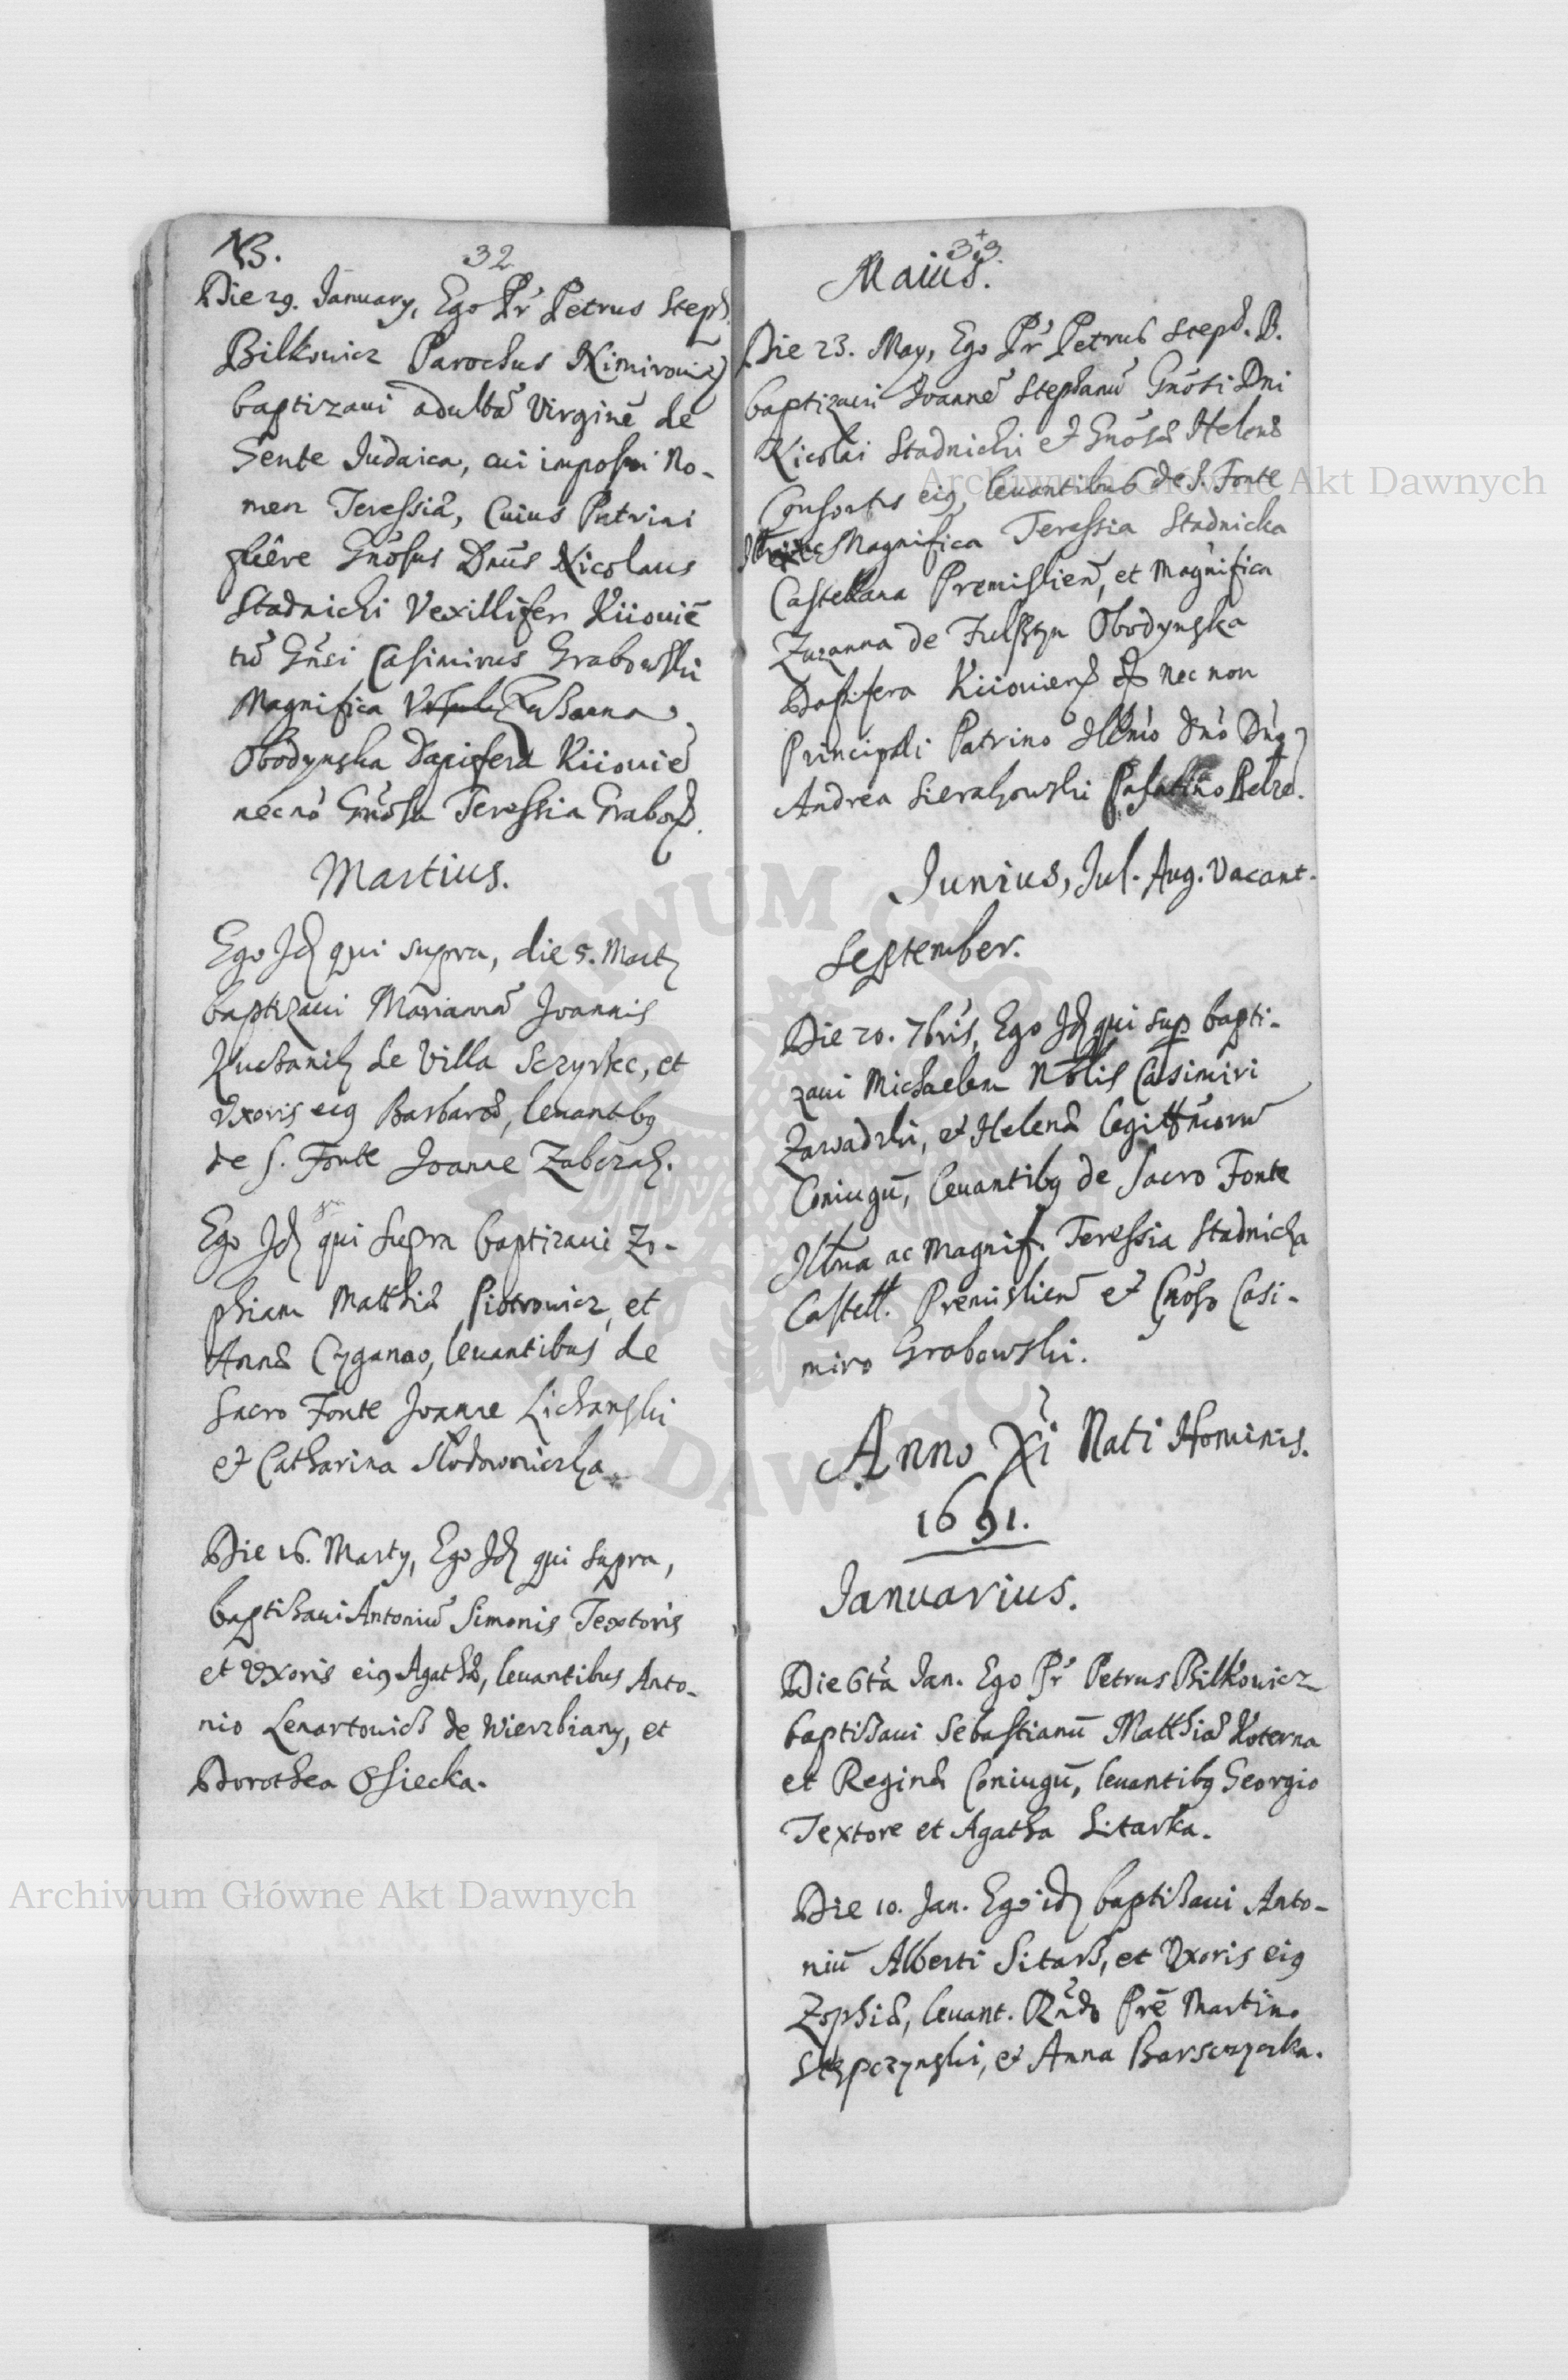 NB.
32
Die 29. January, Ego Pr Petrus Steph.
Bilkowicz Parochus Nimirouię
baptizaui adultā Virginē de
Gente Judaica, cui imposui No-
men Teressiā, Cuius Patrini
fuêre Gnōsus Dnūs Nicolaus
Stadnicki Vexillifer Kiiouiē
tū Gnsi Casimirus Grabowski
Magnifica Zusanna
Obodynska Dapifera Kiiouiē
necnō Gnōsa Teressia Grabow.
Martius.
Ego Jd qui supra, die 5. Marty
baptizaui Mariannā Joannis
de Villa Sczyrzec, et
Vxoris eiq Barbaræ, leuantibq
de S. Fonte Joanne Zabczak.
Ego Jd qui supra baptizaui Zo-
phiam Matthiæ Piotrowicz, et
Annæ Cyganao, leuantibus de
Sacro Fonte Joanne Lichanski
et Catharina Slodowniczka.
Die 16. Marty, Ego Jd qui supra,
baptisaui Antoniū Simonis Textoris
et Vxoris eiq Agathæ, leuantibus Anto-
nio Lenartouich de Wierzbiany, et
Dorothea Osiecka.
33.
Maius.
Die 23. May, Ego Pr Petrus Steph. B.
baptizaui Joannē Stephanū Gnōsi Dni
Nicolai Stadnicki et Gnōsæ Helenæ
Consortis eiq, leuantibus de S. Fonte
Magnifica Teressia Stadnicka
Castellana Premislien, et Magnifica
Zuzanna de Fulsztyn Obodynska
Dapifera Kiiouiens nec non
Principali Patrino Illmō Dnō Dnō
Andrea Sierakowski Palatino Belze.
Junius, Jul. Aug. Vacant.
September.
Die 20. 7bris, Ego Jd qui sup bapti-
zaui Michaelem Noblis Casimiri
Zawadzki, et Helenæ legittmoru
Coniugū, leuantibq de Sacro Fonte
Illma ac Magnif. Teressia Stadnicka
Castell. Premislien et Gnōso Casi-
miro Grabowski.
Anno Xi Nati Hominis.
1691.
Januarius.
Die 6tā Jan. Ego Pr Petrus Bilkowicz
baptisaui Sebastianū Matthiæ Koterna
et Reginæ Coniugū, leuantibq Georgio
Textore et Agatha Sitarka.
Die 10. Jan. Ego id baptisaui Anto-
niū Alberti Sitarz, et Vxoris eiq
Zophiæ, leuant. Rndo Prē Martino
Stępczynski, et Anna Barsczyczka.
Archiwum Główne Akt Dawnych
Archiwum Główne Akt Dawnych